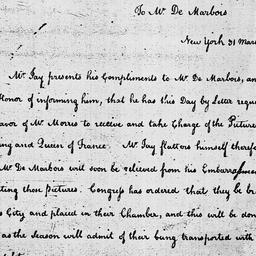 To Mr. De Marbois
New York 31 Marc
Mr. Jay presents his Compliments to Mr. De Marbois, an
Honor of informing him, that he has this Day by Letter reque
avor of Mr. Morris to receive and take Charge of the Pictures
ing and Queen of France. Mr. Jay flatters himself therefo
Mr De Marbois will soon be relieved from his Embarrassme
ting these Pictures. Congress has ordered that they be br
s City and placed in their Chamber, and this will be don
as the Season will admit of their being transported with